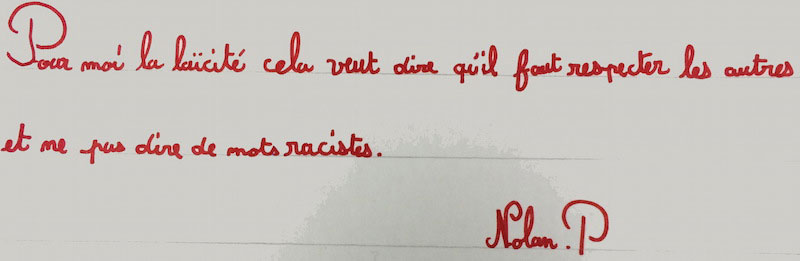 Pour moi la laïcité cela veut dire qu'il faut respecter les autres
et ne pas dire de mots racistes.
Nolan.P